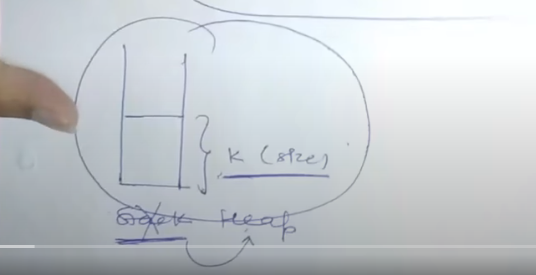 K (size)
Stack Heap